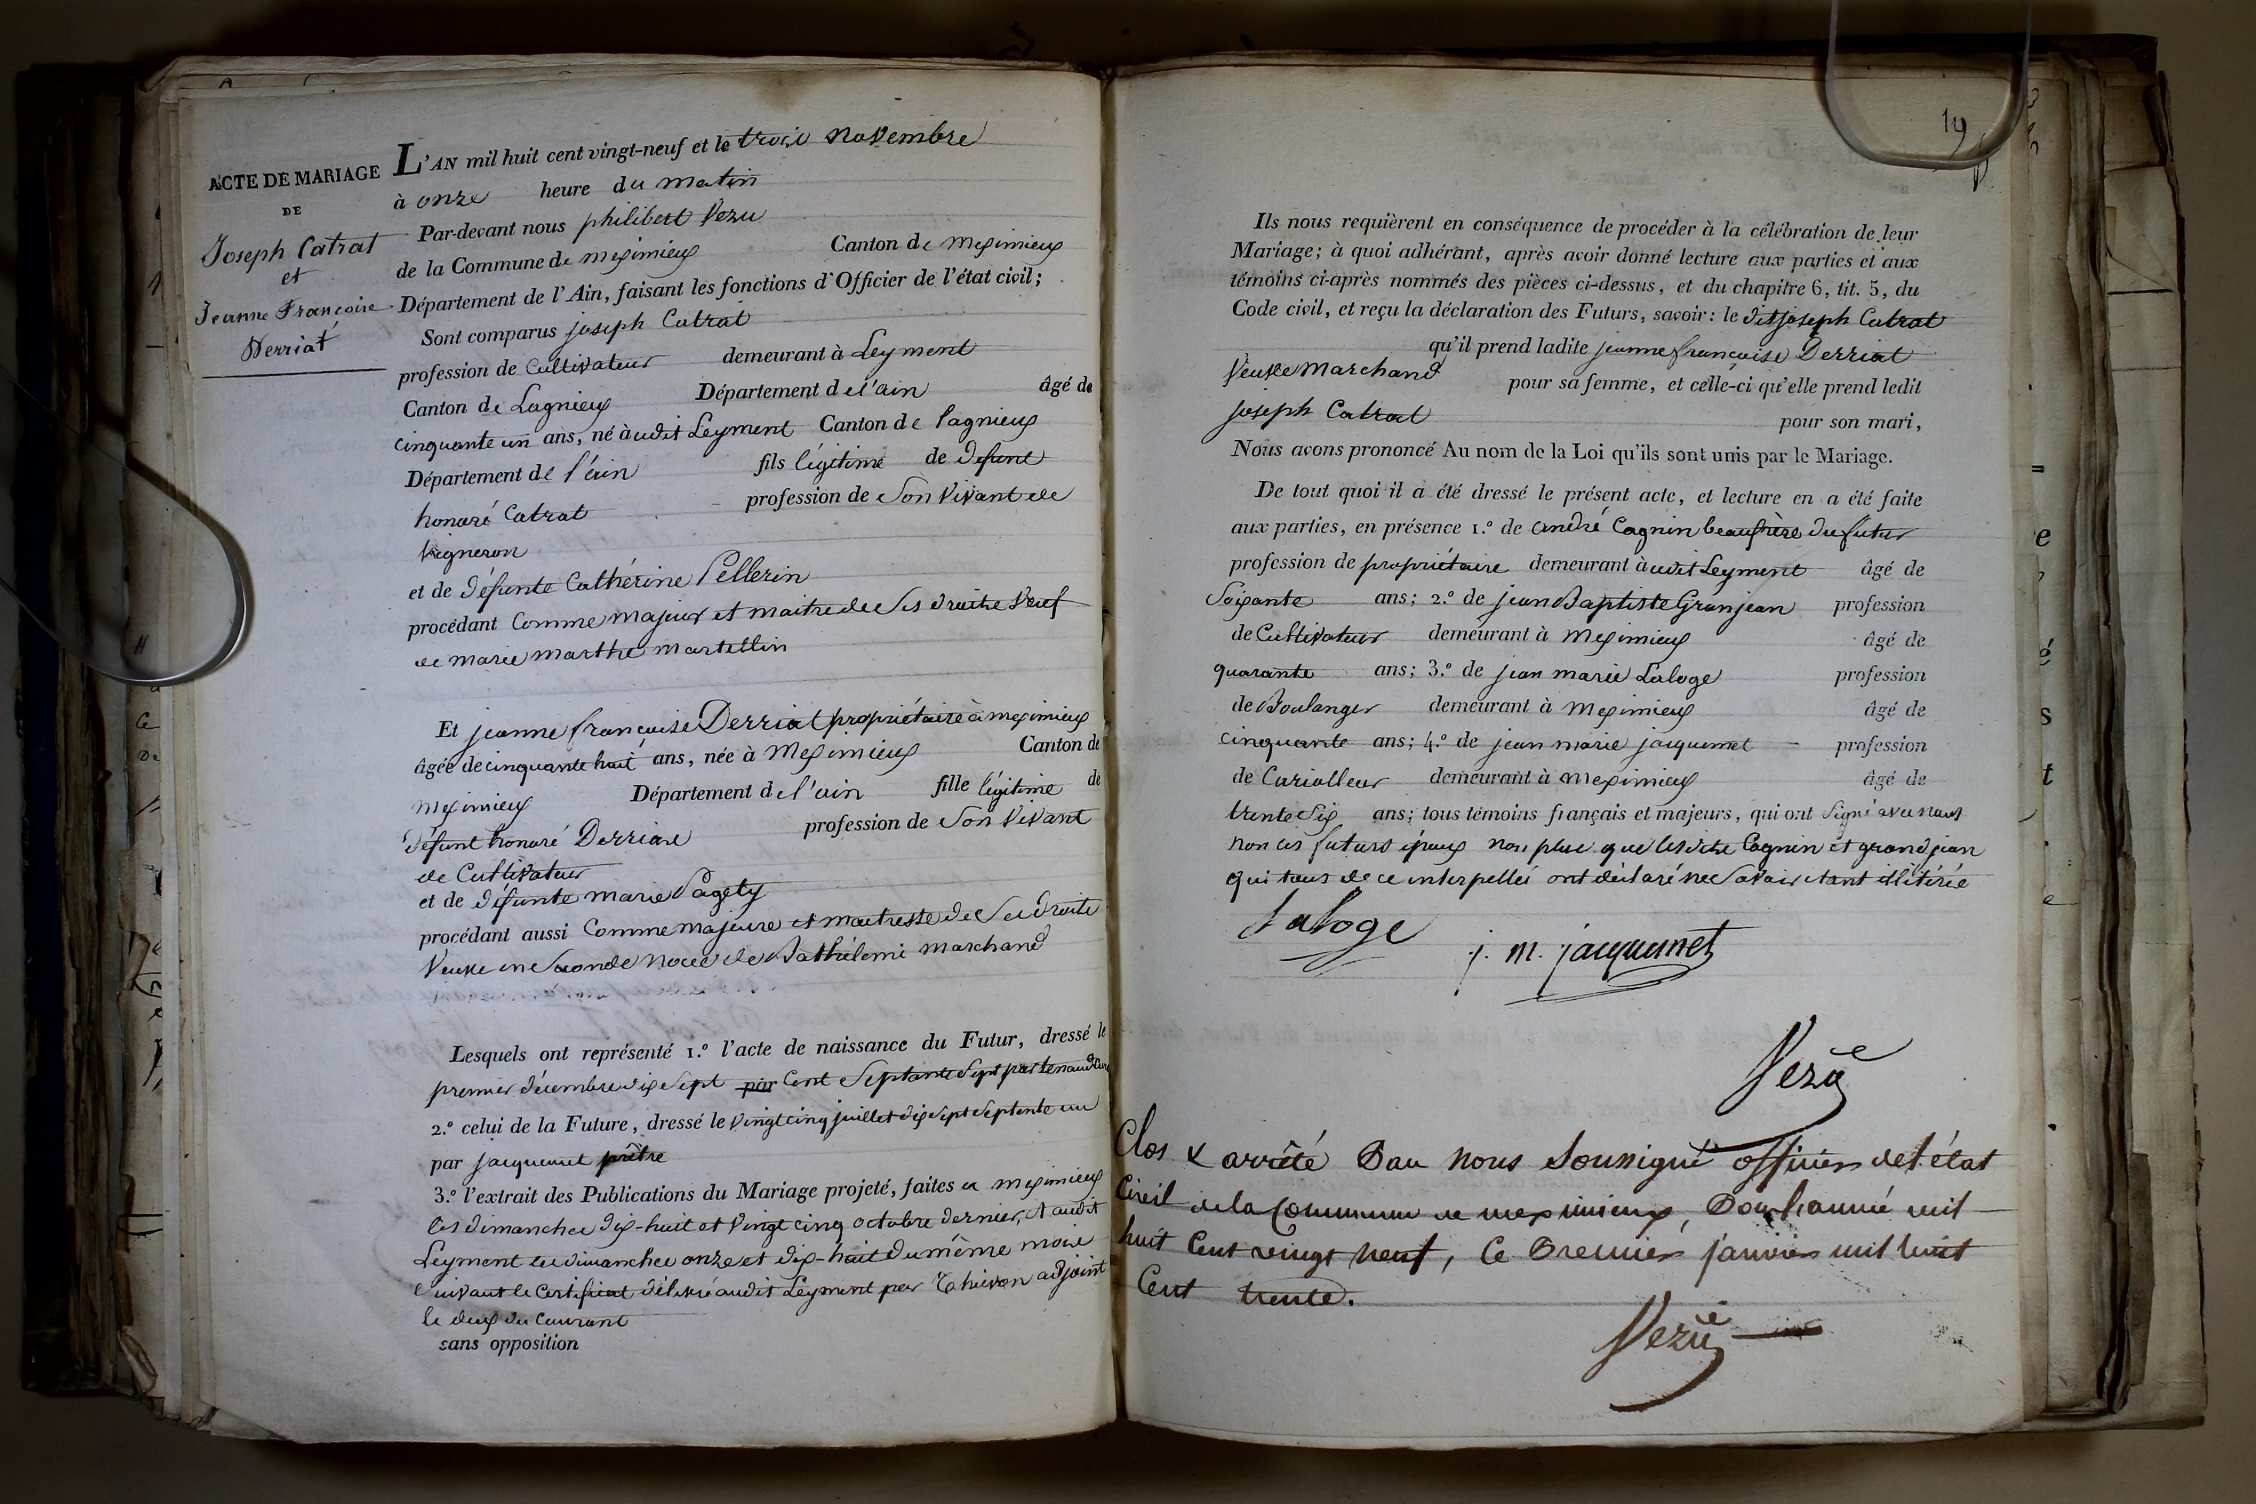 ACTE DE MARIAGE
DE
Joseph Catrat
et
Jeanne Françoise
Derriat
L'AN mil huit cent vingt-neuf et le trois novembre
à onze heure du matin
Par-devant nous philibert Vezu
de la Commune de meximieux Canton de meximieux
Département de l'Ain, faisant les fonctions d'Officier de l'état civil;
Sont comparus joseph Catrat
profession de Cultivateur demeurant à Leyment
Canton de Lagnieux Département de l'ain âgé de
cinquante un ans, né audit Leyment Canton de lagnieux
Département de l'ain fils légitime de defunt
honoré Catrat profession de Son Vivant de
Vigneron
et de défunte Cathérine Pellerin
procédant Comme majeur et maitre de Ses droits Veuf
de marie marthe martellin
Et jeanne françoise Derriat propriétaire à meximieux
âgée de cinquante huit ans, née à Meximieux Canton de
meximieux Département de l'ain fille légitime de
défunt honoré Derriat profession de Son Vivant
de Cultivateur
et de défunte marie Pagety
procédant aussi Comme majeure et maitresse de Ses droits
Veuve en Seconde noces de Bathélemi marchand
Lesquels ont représenté 1.º l'acte de naissance du Futur, dressé le
premier décembre dix Sept par Cent Septante Sept par
2.º celui de la Future, dressé le Vingt cinq juillet dix Sept Septante un
par jacquemet prêtre
3.º l'extrait des Publications du Mariage projeté, faites à meximieux
les dimanches dix-huit et Vingt cinq octobre dernier, et audit
Leyment les dimanches onze et dix-huit du même mois
Suivant le Certificat délivré audit Leyment par Thievon adjoint
le deux du Courant
sans opposition
19
Ils nous requièrent en conséquence de procéder à la célébration de leur
Mariage; à quoi adhérant, après avoir donné lecture aux parties et aux
témoins ci-après nommés des pièces ci-dessus, et du chapitre 6, tit. 5, du
Code civil, et reçu la déclaration des Futurs, savoir: le dit joseph Catrat
qu'il prend ladite jeanne françoise Derriat
Veuve Marchand pour sa femme, et celle-ci qu'elle prend ledit
joseph Catrat pour son mari,
Nous avons prononcé Au nom de la Loi qu'ils sont unis par le Mariage.
De tout quoi il a été dressé le présent acte, et lecture en a été faite
aux parties, en présence 1.º de andré Cagnin beaufrère du futur
profession de propriétaire demeurant audit Leyment âgé de
Soixante ans; 2.º de jean Baptiste Granjean profession
de Cultivateur demeurant à Meximieux âgé de
quarante ans; 3.º de jean marie Laloge profession
de Boulanger demeurant à Meximieux âgé de
cinquante ans; 4.º de jean marie jacquemet profession
de Cariolleur demeurant à Meximieux âgé de
trente Six ans; tous témoins français et majeurs, qui ont Signé avec nous
non les futurs époux non plus que lesdits Cagnin et grandjean
qui tous de ce interpellés ont déclaré ne Savoir étant illitérés
Laloge
j. m. jacquemet
Vezu
Clos & arrêté Par nous Soussigné officier de l'état
Civil de la Commune de meximieux, Pour l'année mil
huit Cent vingt neuf, Ce Premier janvier mil huit
Cent trente.
Vezu